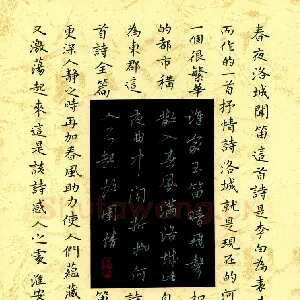 春夜洛城聞笛這首詩是李白為表
而作的一首抒情詩洛城就是現在的河
一個很繁華
的都市稱
為東都這
首詩全篇
誰家玉笛暗飛聲
散入春風滿洛城此
夜曲中聞折柳何
人不起故園情
笛
更深人靜之時再加春風助力使人們蘊藏
又激蕩起來這是該詩感人之處淮安